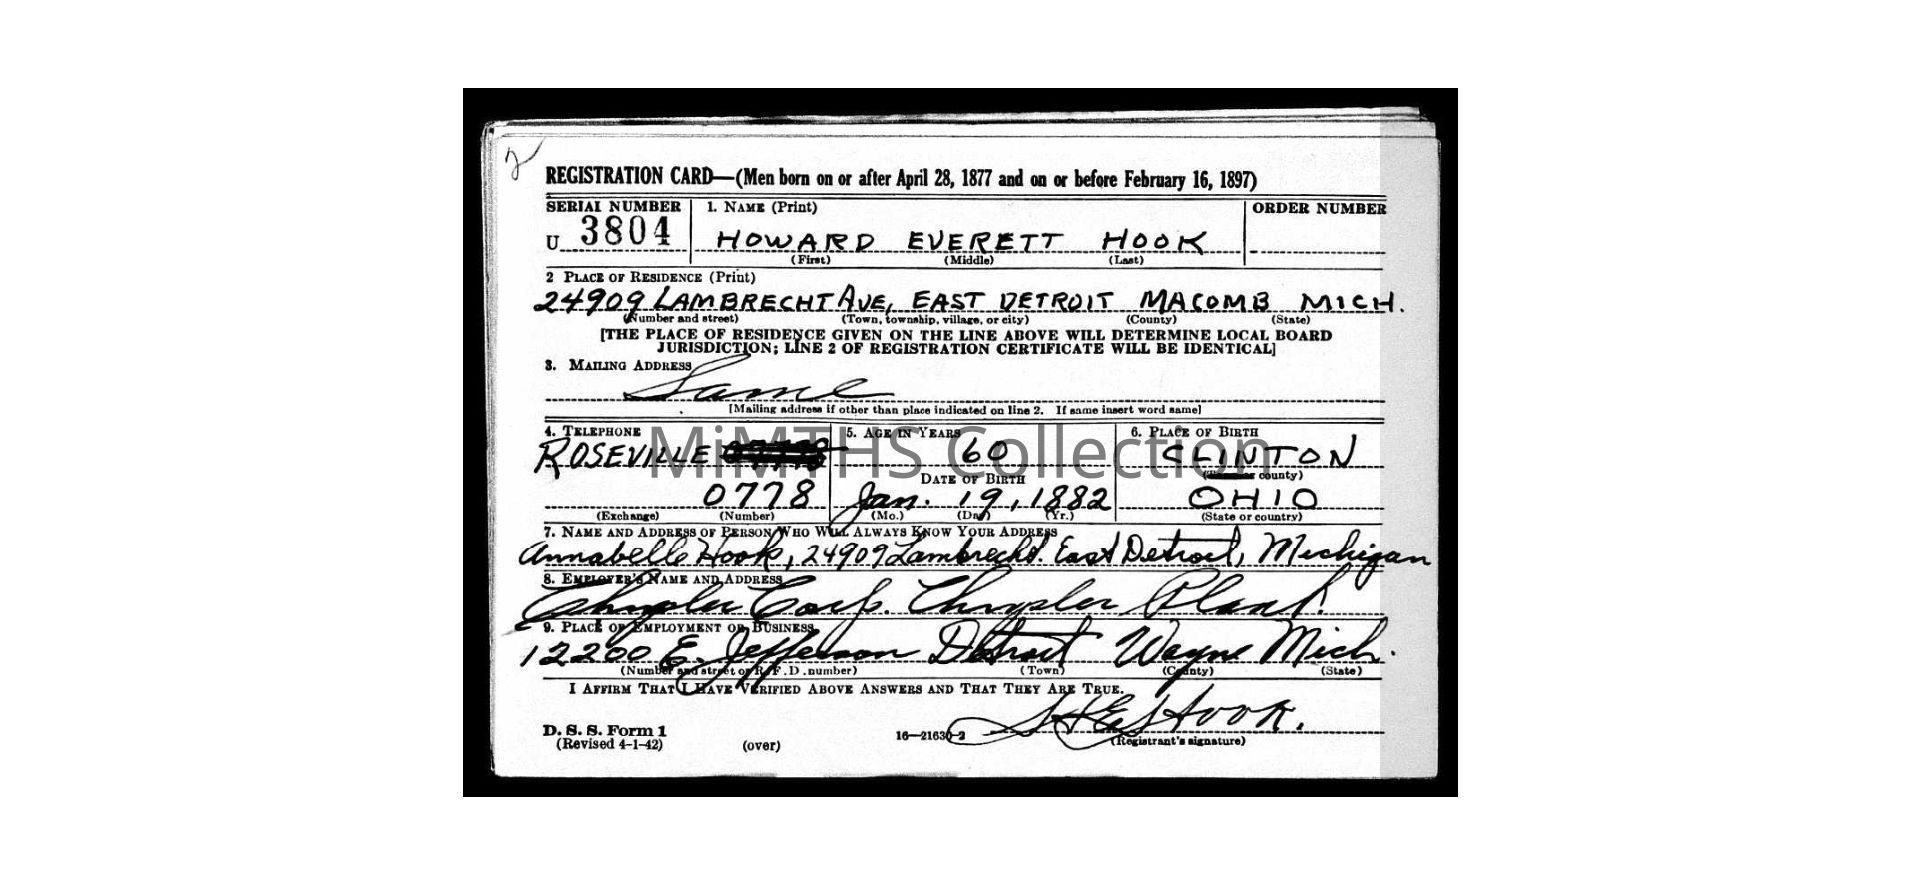 2
REGISTRATION CARD—(Men born on or after April 28, 1877 and on or before February 16, 1897)
SERIAL NUMBER 1. NAME (Print) ORDER NUMBER
U 3804 HOWARD EVERETT HOOK
(First) (Middle) (Last)
2 PLACE OF RESIDENCE (Print)
24909 LAMBRECHT AVE, EAST DETROIT MACOMB MICH.
(Number and street) (Town, township, village, or city) (County) (State)
[THE PLACE OF RESIDENCE GIVEN ON THE LINE ABOVE WILL DETERMINE LOCAL BOARD
JURISDICTION; LINE 2 OF REGISTRATION CERTIFICATE WILL BE IDENTICAL]
3. MAILING ADDRESS
Same
[Mailing address if other than place indicated on line 2. If same insert word same]
4. TELEPHONE 5. AGE IN YEARS 6. PLACE OF BIRTH
MiMTHS Collection
ROSEVILLE 60 CLINTON
DATE OF BIRTH (county)
0778 Jan. 19, 1882 OHIO
(Exchange) (Number) (Mo.) (Day) (Yr.) (State or country)
7. NAME AND ADDRESS OF PERSON WHO WILL ALWAYS KNOW YOUR ADDRESS
Annabelle Hook, 24909 Lambrecht. East Detroit, Michigan
8. EMPLOYER'S NAME AND ADDRESS
Chrysler Corp. Chrysler Plant.
9. PLACE OF EMPLOYMENT OR BUSINESS
12200 E. Jefferson Detroit Wayne Mich.
(Number and street or R. F. D. number) (Town) (County) (State)
I AFFIRM THAT I HAVE VERIFIED ABOVE ANSWERS AND THAT THEY ARE TRUE.
H E Hook.
D. S. S. Form 1
(Revised 4-1-42) (over) 16—21630-2 (Registrant's signature)